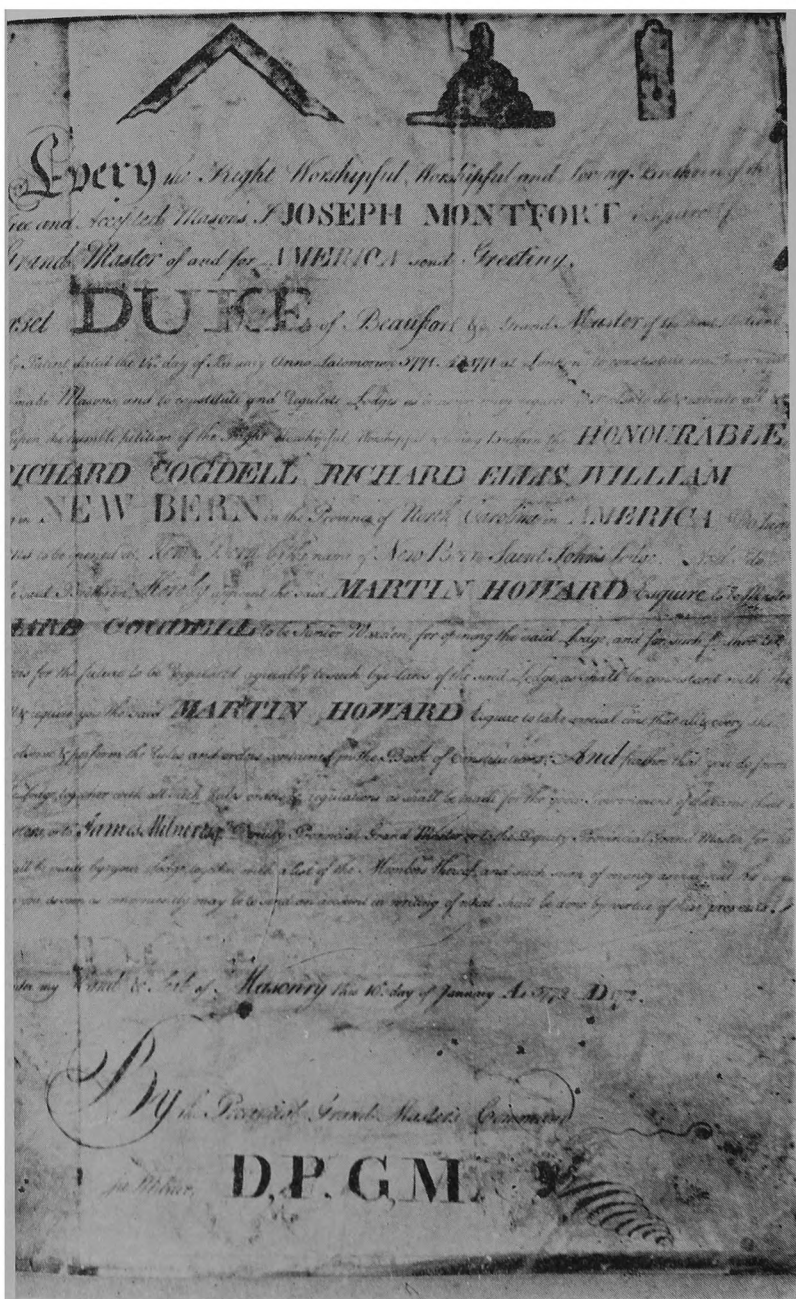 Every the Right Worshipful, Worshipful and loving Brethren of the
ree and Accepted Masons I JOSEPH MONTFORT
Grand Master of and for AMERICA send Greeting.
rset DUKE of Beaufort &c Grand Master of the
Patent dated the 14 day of Anno Lalomonon 5771 AD 1771 at London to constitute
make Masons, and to constitute and Regulate Lodges as occasion may require
upon the humble petition of the Right Worshipful Worshipful & loving Brethren the HONOURABLE
RICHARD COGDELL RICHARD ELLIS WILLIAM
in NEW BERN in the Province of North Carolina in AMERICA
to be opened at New Bern by the name of New Bern Saint John's Lodge
said Brethren Hereby appoint the said MARTIN HOWARD Esquire to be
HARD COGDELL to be Junior Warden, for opening the said Lodge, and for such
for the future to be Regulated agreeably to such bye-laws of the said Lodge, as shall be consistant with the
& require you the said MARTIN HOWARD Esquire to take special care that all & every the
& perform the Rules and orders contained in the Book of Constitutions; And further that you do from
Lodge, together with all such Rules orders & regulations as shall be made for the good Government of the same
or to James Milner Esqr Deputy Provincial Grand Master or to the Deputy Provincial Grand Master for the
to be made by your Lodge, together with a List of the Members thereof, and such sum of money as
you as soon as conveniently may be to send an account in writing of what shall be done by vertue of these presents.
under my Hand & Seal of Masonry this 10th day of January AL 5772 AD 1772.
By the Provincial Grand Master's Command
Jas Milner, D.P.G.M.